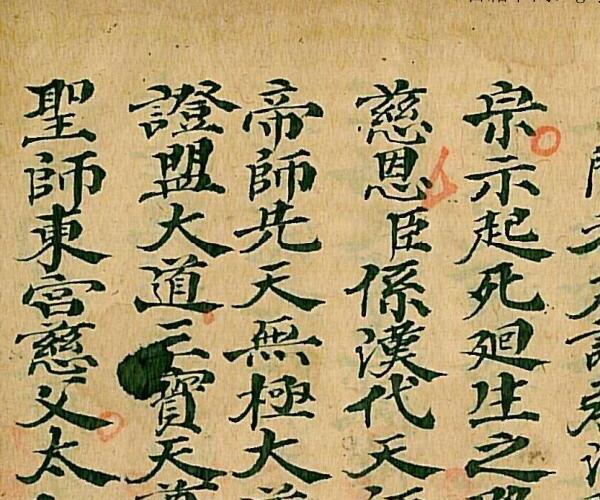 宗示起死廻生之
慈恩臣係漢代天師
帝師先天無極大道
證盟大道三寶天尊
聖師東宮慈父太